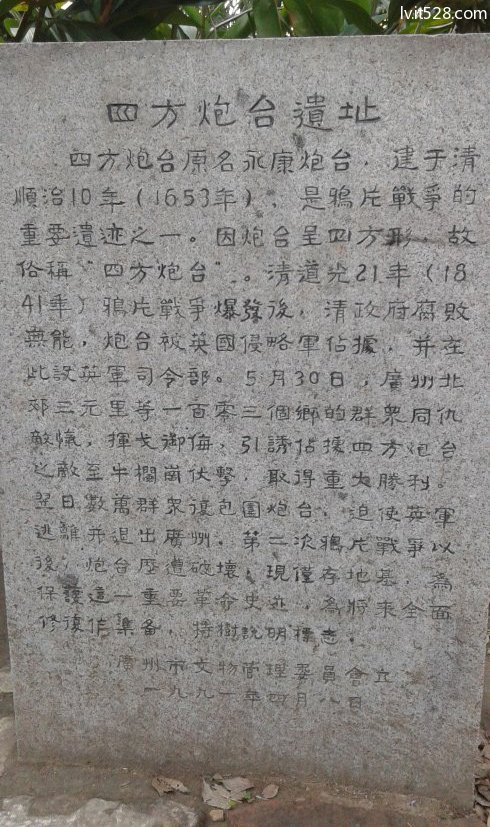 lvit528.com
四方炮台遺址
四方炮台原名永康炮台，建于清
順治10年（1653年），是鴉片戰爭的
重要遺迹之一。因炮台呈四方形，故
俗稱“四方炮台”。清道光21年（18
41年）鴉片戰爭爆發後，清政府腐敗
無能，炮台被英國侵略軍佔據，并在
此設英軍司令部。5月30日，廣州北
郊三元里等一百零三個鄉的群衆同仇
敵愾，揮戈御侮，引誘佔據四方炮台
之敵至牛欄崗伏擊，取得重大勝利。
翌日數萬群衆復包圍炮台，迫使英軍
逃離并退出廣州。第二次鴉片戰爭以
後，炮台歷遭破壞，現僅存地基，為
保護這一重要革命史迹，為將來全面
修復作準備，特樹說明標志。
廣州市文物管理委員會立
一九九一年四月八日